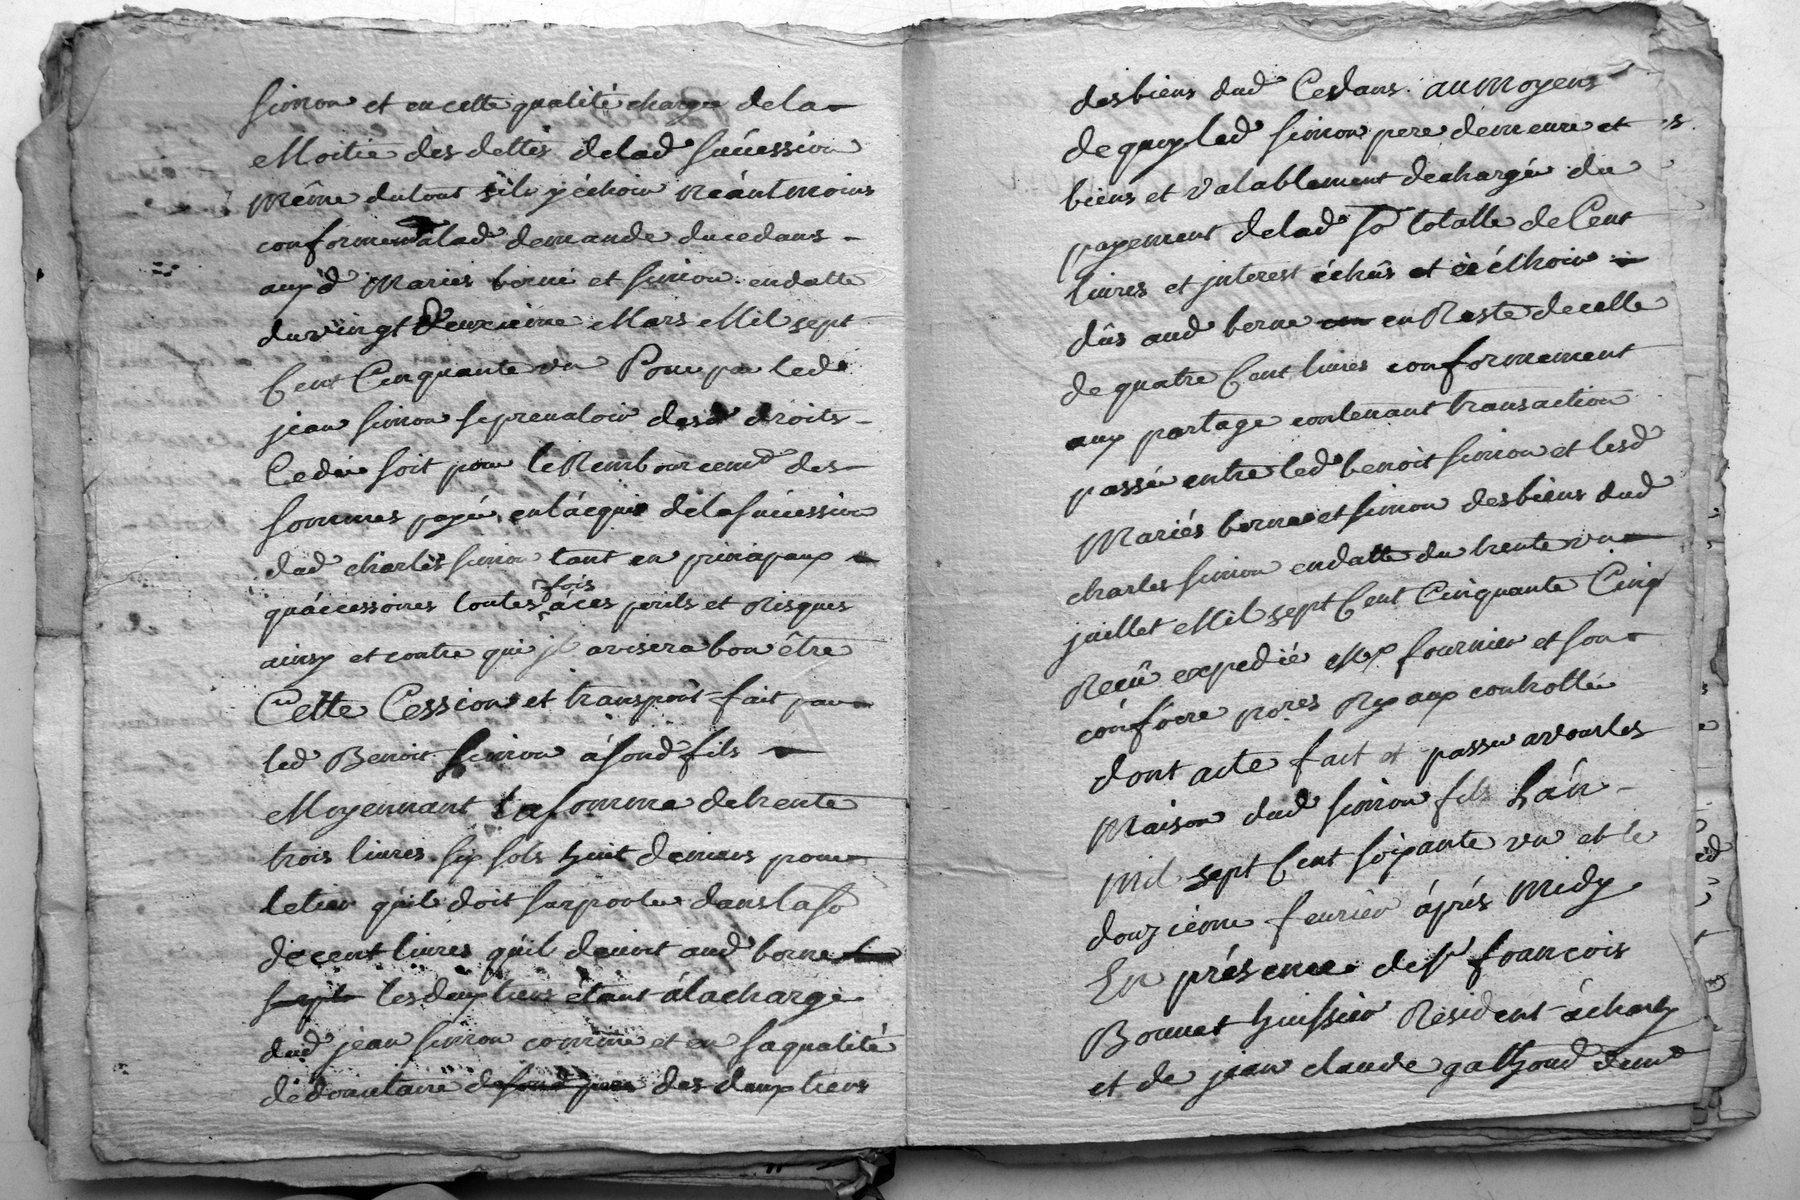 simon et en cette qualité chargé dela
Moitié des dettes delad succession
Même dutout sily échoir néantmoins
conformem alad demande ducedans
auxd Mariés borne et simon endatte
duvingt deuxieme Mars Mil sept
Cent Cinquante un Pour par led
jean simon seprevaloir desd droits
Cedés soit pour le Rembourcemt des
sommes payé en lacquis delasuccession
dud charles simon tant en principaux
quáccessoires toutes fois áces perils et Risques
ainsy et contre qui jl avisera bon être
Cette Cession et transport fait par
led Benoit simon ásond fils
Moyennant la somme detrente
trois livres six sols huit deniers pour
letier quil doit surporter danslaso
decent livres quil devoit aud borne
lesdeux tiers étant álacharge
dud jean simon comme et en saqualité
dedonnataire des deux tiers
desbiens dud Cedans. aumoyens
dequoy led simon pere demeure et ses
biens et valablement dechargé du
payement delad so totalle deCent
livres et jnterest échûs et àéchoir
dûs aud borne en Reste decelle
de quatre Cent livres conformement
aux partage contenant transaction
passé entre led benoit simon et lesd
Mariés borne et simon desbiens dud
charles simon endatte du trente un
juillet Mil sept Cent Cinquante Cinq
Reçû expedié Me fournier et son
confrere Royaux controllé
dont acte fait et passé
Maison dud simon fils Lán
mil sept Cent soixante un et le
douzieme fevrier áprés Midy
En présence desr françois
Bonnet huissier Résident ácharly
et de jean claude gathoud demt